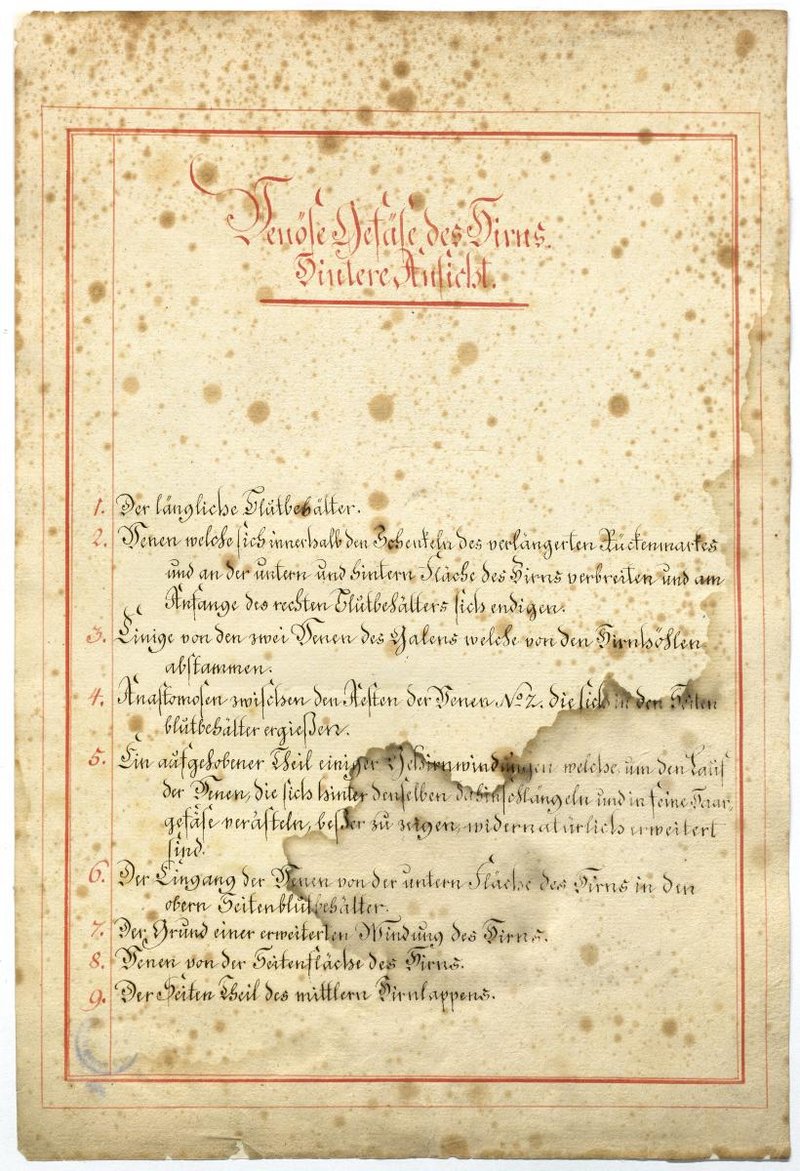 Venöse Gefäse des Hirns.
Hintere Ansicht.
1. Der längliche Blutbehälter.
2. Venen welche sich innerhalb den Schenkeln des verlängerten Rückenmarkes
und an der untern und hintern Fläche des Hirns verbreiten und am
Anfange des rechten Blutbehälters sich endigen.
3. Einige von den zwei Venen des Galens welche von den Hirnhöhlen
abstammen.
4. Anastomosen zwischen den Aesten der Venen No 2. die sich in den Seiten
blutbehälter ergießen.
5. Ein aufgehobener Theil einiger Gehirnwindungen welche, um den Lauf
der Venen, die sich hinter denselben dahinschlängeln und in feine Haar-
gefäse verästeln, beßer zu zeigen, widernatürlich erweitert
sind.
6. Der Eingang der Venen von der untern Fläche des Hirns in den
obern Seitenblutbehälter.
7. Der Grund einer erweiterten Windung des Hirns.
8. Venen von der Seitenfläche des Hirns.
9. Der Seiten Theil des mittlern Hirnlappens.